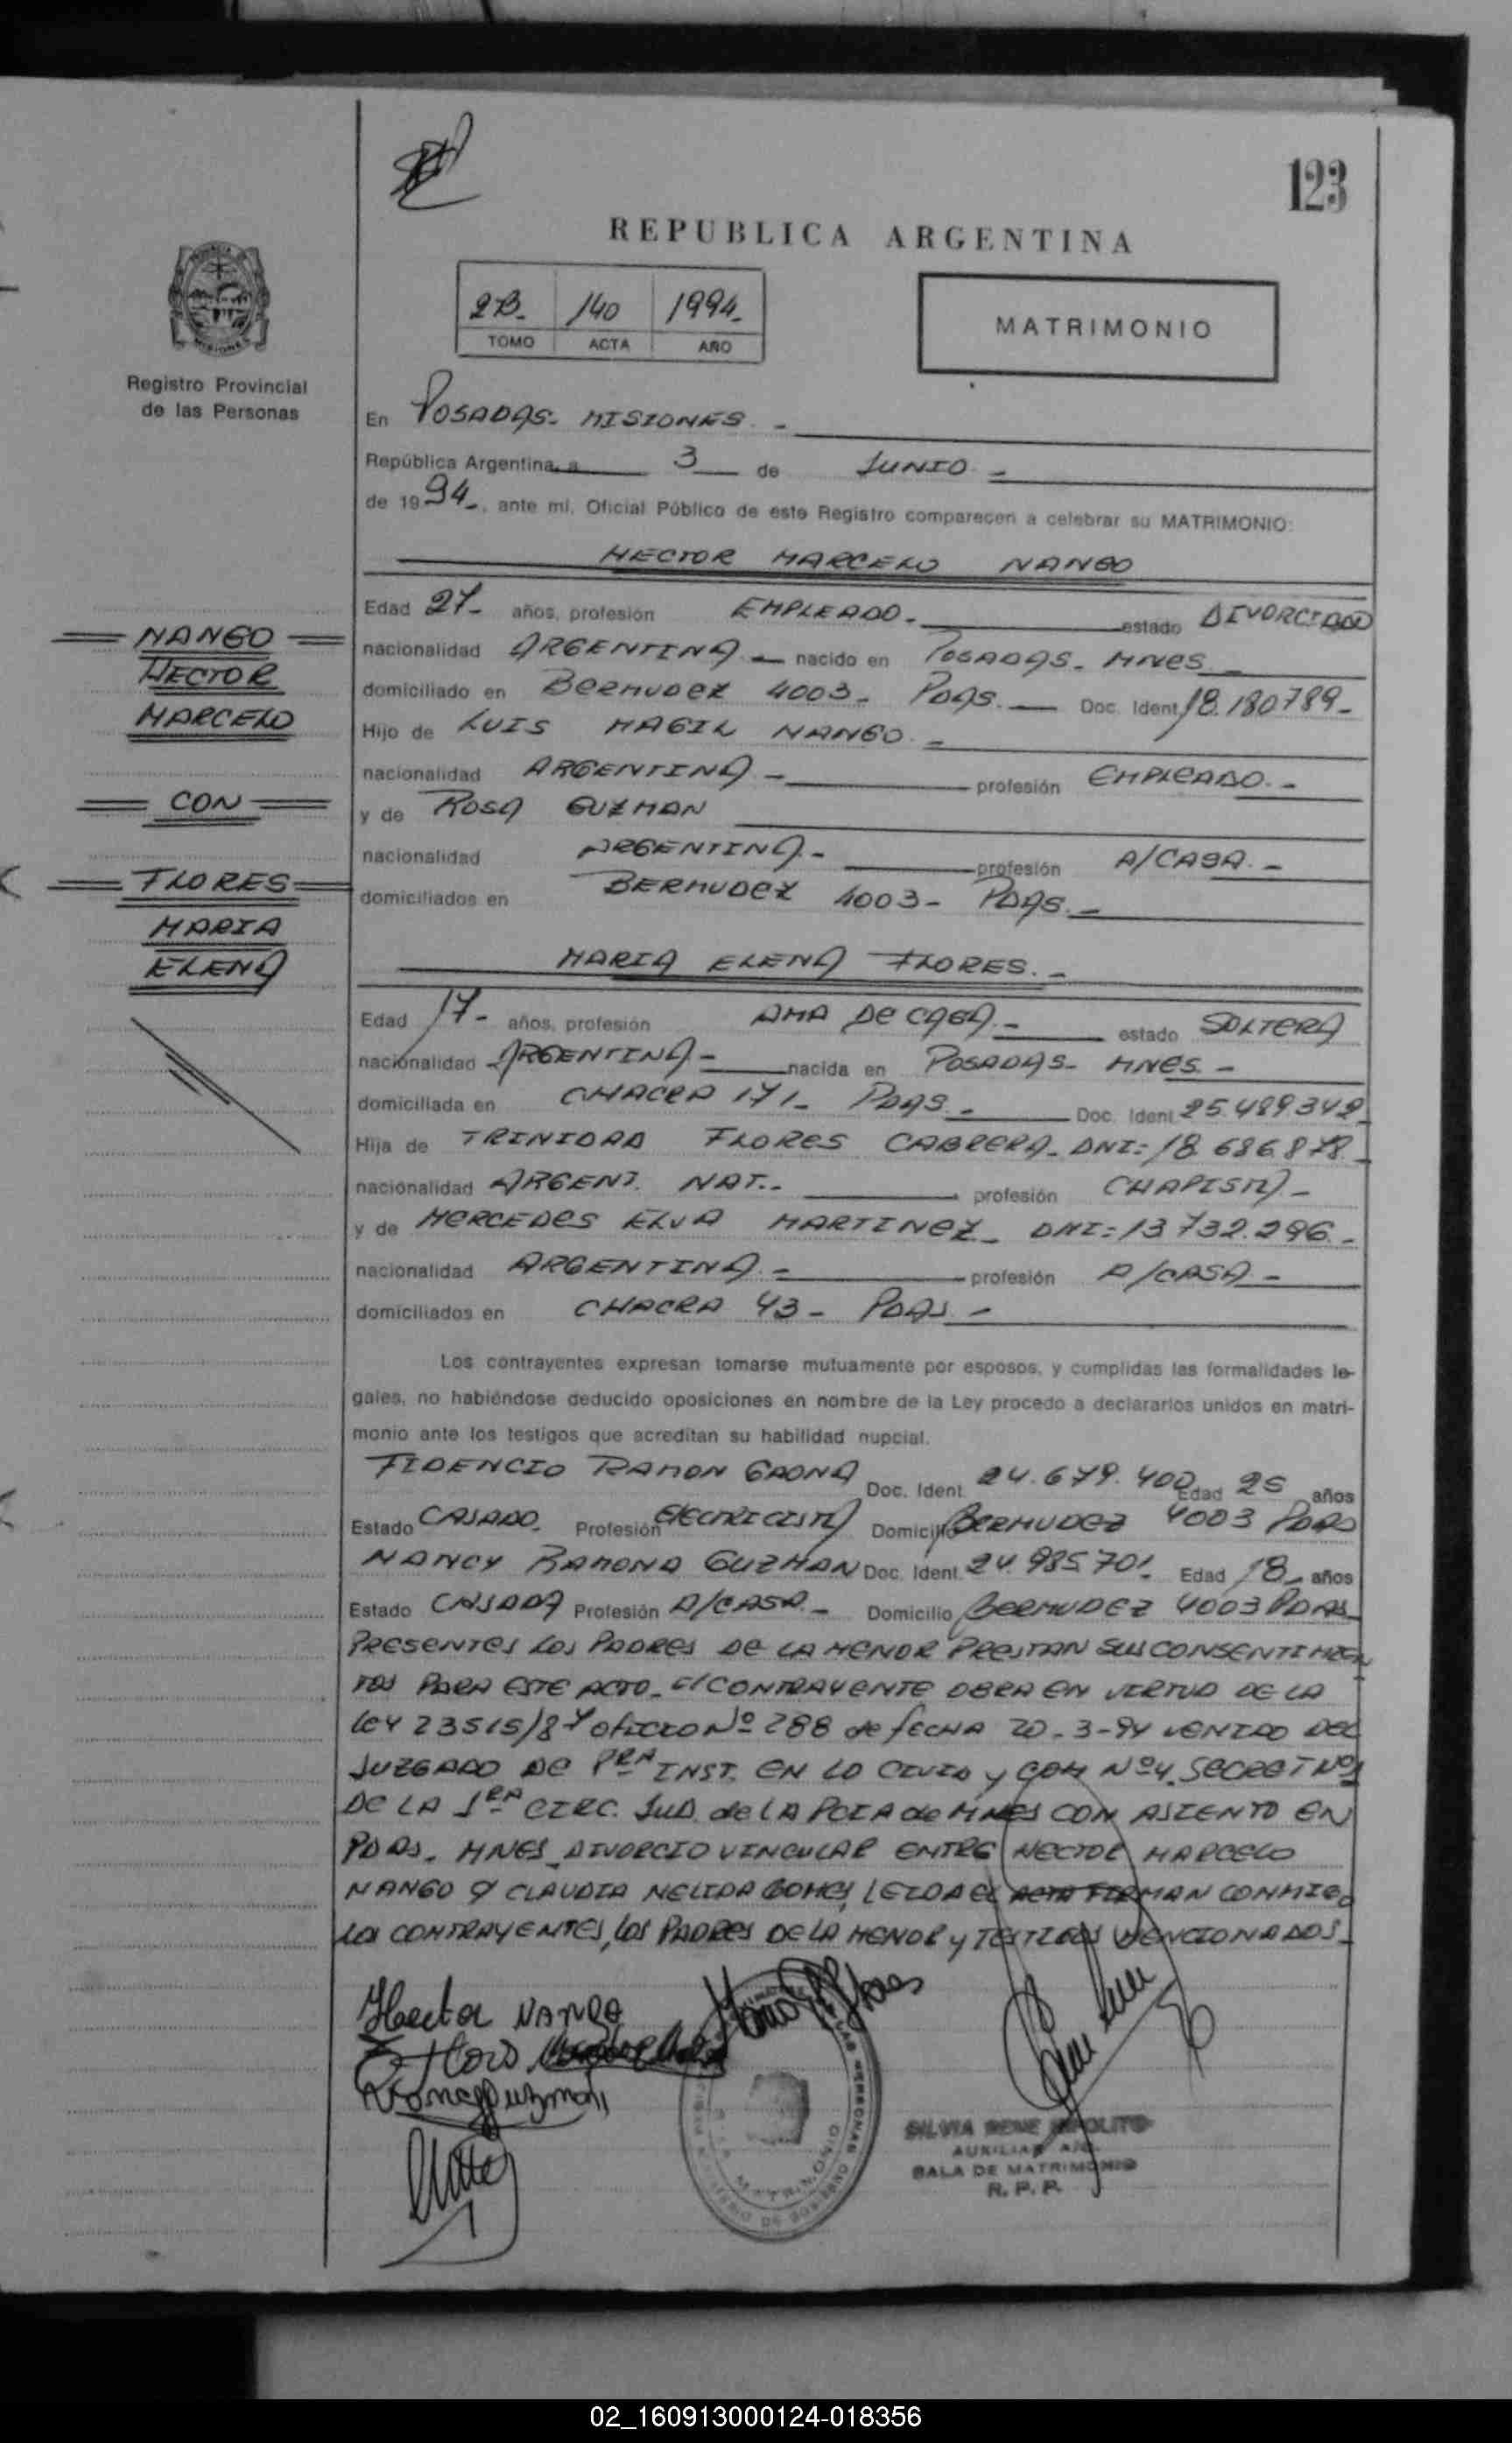 123
REPUBLICA ARGENTINA
2B- 140 1994-
TOMO ACTA AÑO
MATRIMONIO
Registro Provincial
de las Personas
En POSADAS- MISIONES.-
República Argentina, a 3 de JUNIO.-
de 1994-, ante mi, Oficial Público de este Registro comparecen a celebrar su MATRIMONIO:
HECTOR MARCELO NANGO
Edad 27- años, profesión EMPLEADO.- estado DIVORCIADO
nacionalidad ARGENTINA.- nacido en POSADAS- MNES.-
domiciliado en BERMUDEZ 4003- PDAS.- Doc. Ident. 18.180789-
Hijo de LUIS MAGIL NANGO.-
nacionalidad ARGENTINA.- profesión EMPLEADO.-
y de ROSA GUZMAN
nacionalidad ARGENTINA.- profesión A/CASA.-
domiciliados en BERMUDEZ 4003- PDAS.-
NANGO
HECTOR
MARCELO
CON
FLORES
MARIA
ELENA
MARIA ELENA FLORES.-
Edad 17- años, profesión AMA DE CASA.- estado SOLTERA
nacionalidad ARGENTINA- nacida en POSADAS- MNES.-
domiciliada en CHACRA 171- PDAS.- Doc. Ident. 25.489.342
Hija de TRINIDAD FLORES CABRERA- DNI: 18.686.878-
nacionalidad ARGENT. NAT.- profesión CHAPISTA-
y de MERCEDES ELVA MARTINEZ- DNI: 13.732.296.-
nacionalidad ARGENTINA.- profesión A/CASA.-
domiciliados en CHACRA 43- PDAS.-
Los contrayentes expresan tomarse mutuamente por esposos, y cumplidas las formalidades le-
gales, no habiéndose deducido oposiciones en nombre de la Ley procedo a declararlos unidos en matri-
monio ante los testigos que acreditan su habilidad nupcial.
FIDENCIO RAMON GAONA Doc. Ident. 24.679.400 Edad 25 años
Estado CASADO. Profesión ELECTRICISTA Domicilio BERMUDEZ 4003 PDAS
NANCY RAMONA GUZMAN Doc. Ident. 24.985701 Edad 18- años
Estado CASADA Profesión A/CASA.- Domicilio BERMUDEZ 4003 PDAS
PRESENTES LOS PADRES DE LA MENOR PRESTAN SUS CONSENTIMIEN
TOS PARA ESTE ACTO- El CONTRAYENTE OBRA EN VIRTUD DE LA
LEY 23515/87 OFICIO Nº 288 de fecha 20-3-94 VENIDO DEL
JUZGADO DE PRA INST. EN LO CIVIL y COM Nº4. SECRET Nº1
DE LA 1RA CIRC. JUD. de LA PCIA de MNES CON ASIENTO EN
PDAS. MNES. DIVORCIO VINCULAR ENTRE HECTOR MARCELO
NANGO Y CLAUDIA NELIDA GOMES, LEIDA EL ACTA FIRMAN CONMIGO
LOS CONTRAYENTES, LOS PADRES DE LA MENOR y TESTIGOS MENCIONADOS-
Hector NANGO
SILVIA RENE HIPOLITO
AUXILIAR A/C
SALA DE MATRIMONIO
R. P. P.
MATRIMONIO
02_160913000124-018356